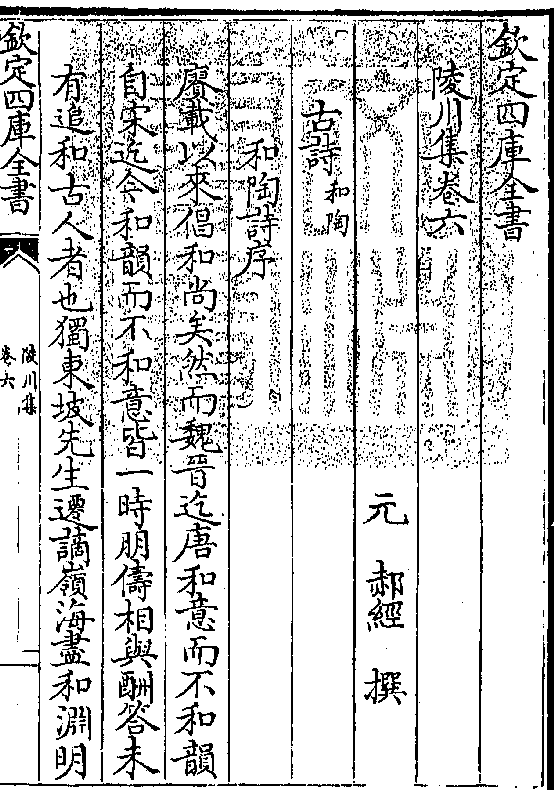 欽定四庫全書
陵川集卷六
元 郝經 撰
古詩和陶
和陶詩序
賡載以來倡和尚矣然而魏晉迄唐和意而不和韻
自宋迄今和韻而不和意皆一時朋儔相與酬答未
有追和古人者也獨東坡先生遷謫嶺海盡和淵明
欽定四庫全書
陵川集
卷六